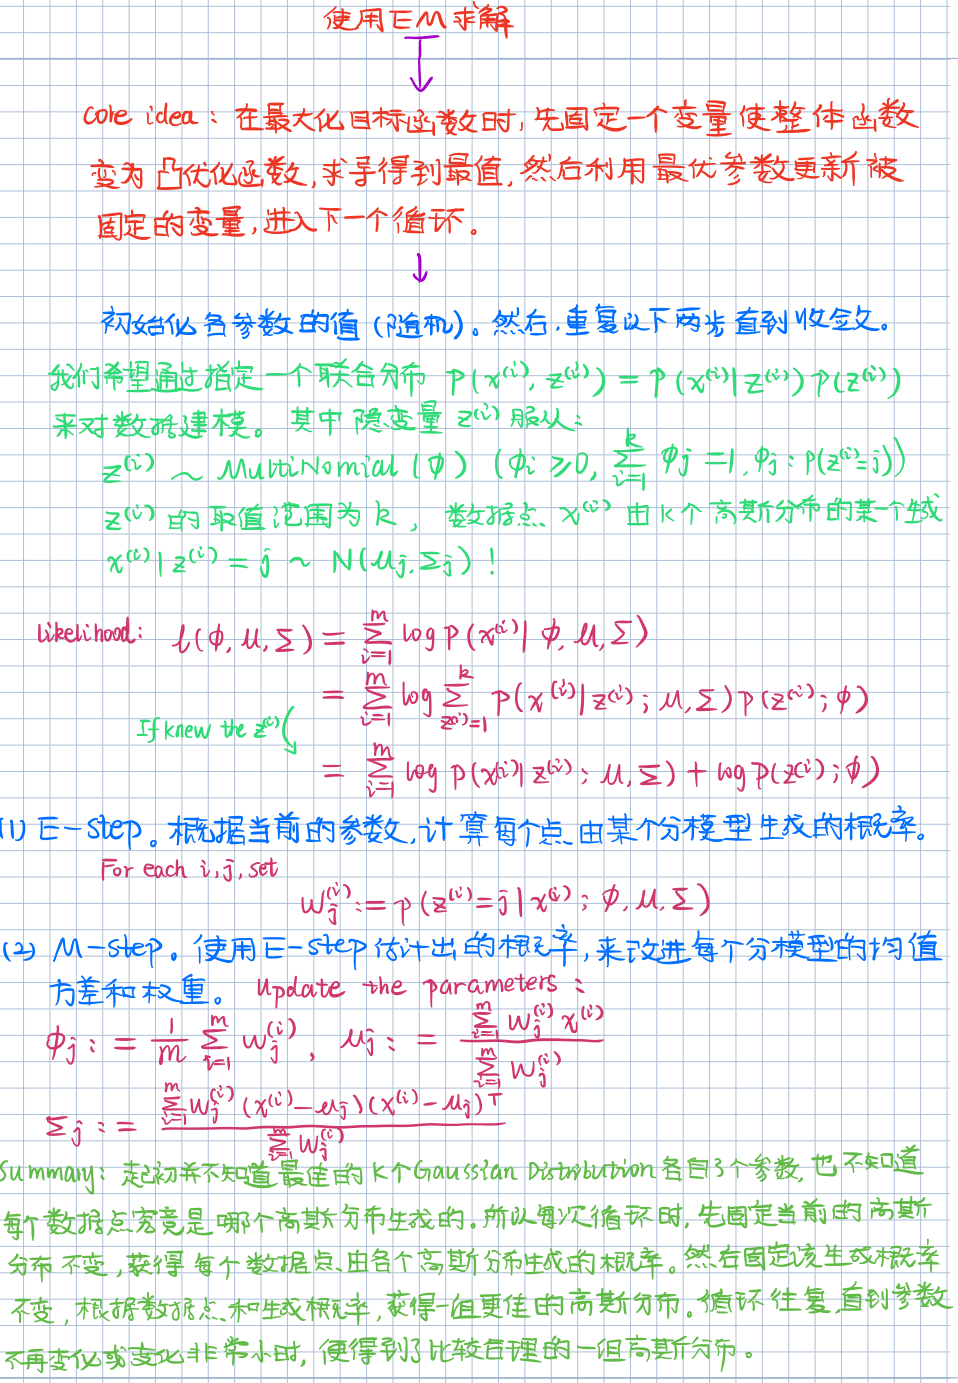 使用EM求解
core idea：在最大化目标函数时，先固定一个变量使整体函数
变为凸优化函数，求导得到最值，然后利用最优参数更新被
固定的变量，进入下一个循环。
初始化各参数的值（随机）。然后，重复以下两步直到收敛。
我们希望通过指定一个联合分布 P(x⁽ⁱ⁾, z⁽ⁱ⁾) = P(x⁽ⁱ⁾|z⁽ⁱ⁾)P(z⁽ⁱ⁾)
来对数据建模。其中隐变量 z⁽ⁱ⁾ 服从：
z⁽ⁱ⁾ ~ MultiNomial(φ) (φi ≥0, Σ_{i=1}^{k} φj =1, φj : P(z⁽ⁱ⁾=j))
z⁽ⁱ⁾ 的取值范围为k，数据点 x⁽ⁱ⁾ 由K个高斯分布的某一个生成
x⁽ⁱ⁾|z⁽ⁱ⁾ = j ~ N(μj, Σj) !
Likelihood: ℓ(φ, μ, Σ) = Σ_{i=1}^{m} log P(x⁽ⁱ⁾| φ, μ, Σ)
= Σ_{i=1}^{m} log Σ_{z⁽ⁱ⁾=1}^{k} P(x⁽ⁱ⁾|z⁽ⁱ⁾; μ, Σ)P(z⁽ⁱ⁾; φ)
If knew the z⁽ⁱ⁾
= Σ_{i=1}^{m} log P(x⁽ⁱ⁾|z⁽ⁱ⁾; μ, Σ) + log P(z⁽ⁱ⁾; φ)
(1) E-Step。根据当前的参数，计算每个点由某个分模型生成的概率。
For each i, j, set
w_j⁽ⁱ⁾ := p(z⁽ⁱ⁾=j|x⁽ⁱ⁾; φ, μ, Σ)
(2) M-step。使用E-step估计出的概率，来改进每个分模型的均值
方差和权重。 update the parameters：
φj := 1/m Σ_{i=1}^{m} w_j⁽ⁱ⁾, μj := Σ_{i=1}^{m} w_j⁽ⁱ⁾ x⁽ⁱ⁾ / Σ_{i=1}^{m} w_j⁽ⁱ⁾
Σj := Σ_{i=1}^{m} w_j⁽ⁱ⁾ (x⁽ⁱ⁾-μj)(x⁽ⁱ⁾-μj)ᵀ / Σ_{i=1}^{m} w_j⁽ⁱ⁾
Summary: 起初并不知道最佳的K个Gaussian Distribution各自3个参数，也不知道
每个数据点究竟是哪个高斯分布生成的。所以每次循环时，先固定当前的高斯
分布不变，获得每个数据点由各个高斯分布生成的概率。然后固定该生成概率
不变，根据数据点和生成概率，获得一组更佳的高斯分布。循环往复，直到参数
不再变化或变化非常小时，便得到了比较合理的一组高斯分布。